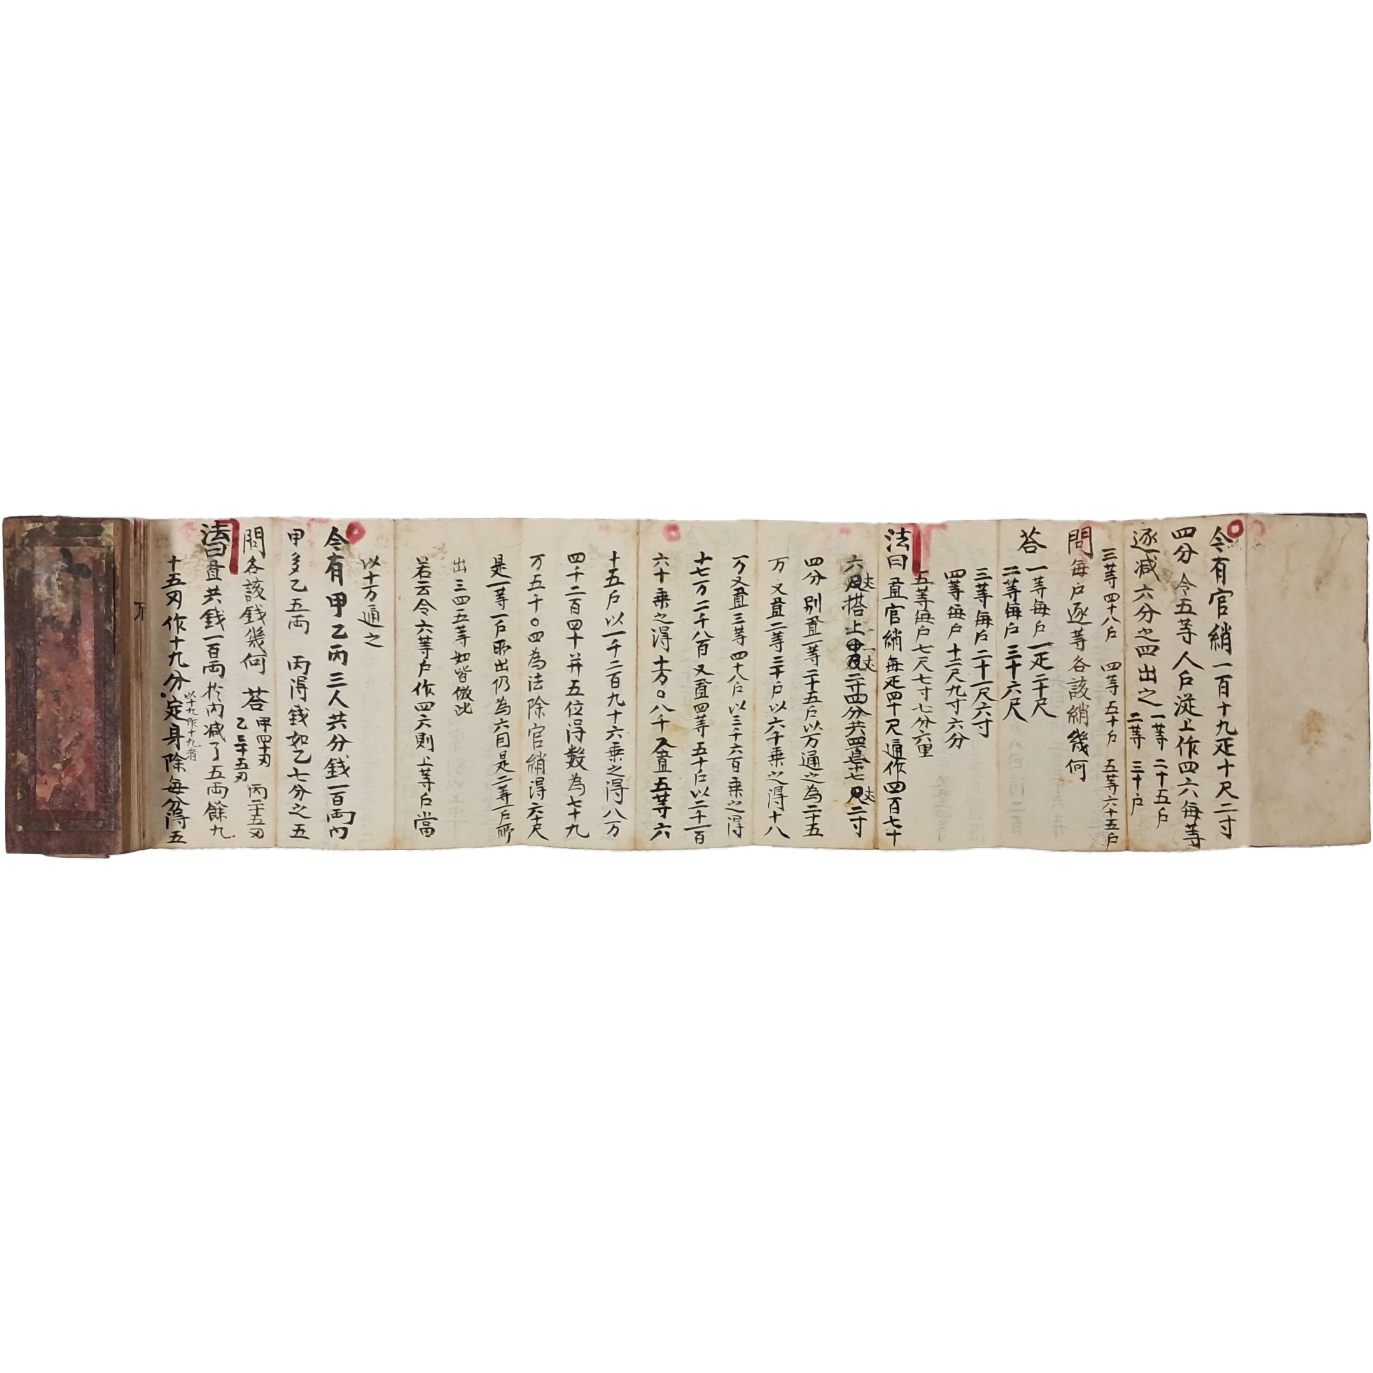 今有官綃一百十九疋十尺二寸
四分 令五等人戶從上作四六每等
逐减六分之四出之 一等 二十五戶
二等 三十戶
三等四十八戶 四等五十戶 五等六十五戶
問每戶逐等各該綃幾何
答 一等每戶一疋二十尺
二等每戶三十六尺
三等每戶二十一尺六寸
四等每戶十二尺九寸六分
五等每戶七尺七寸七分六里
法曰置官綃每疋四十尺通作四百七十
四分別置一等二十五戶以万通之為二十五
万 又置二等三十戶以六千乘之得十八
万又置三等四十八戶以三千六百乘之得
十七万二千八百又置四等五十戶以二千一百
六十乘之得十万〇八千又置五等六
十五戶以一千二百九十六乘之得八万
四千二百四十并五位得數為七十九
万五千〇四為法除官綃得六十尺
是一等一戶所出仍為六因是二等一戶所
出三四五等如皆倣此
若云令六等戶作四六則上等戶當
以十万通之
今有甲乙丙三人共分錢一百兩內
甲多乙五両 丙得錢如乙七分之五
問各該錢幾何 荅 甲四十刃 丙二十五刃
乙三十五刃
法曰置共錢一百両於內减了五両餘九
十五刃作十九分 以十九作十九者 以定身除每分得五